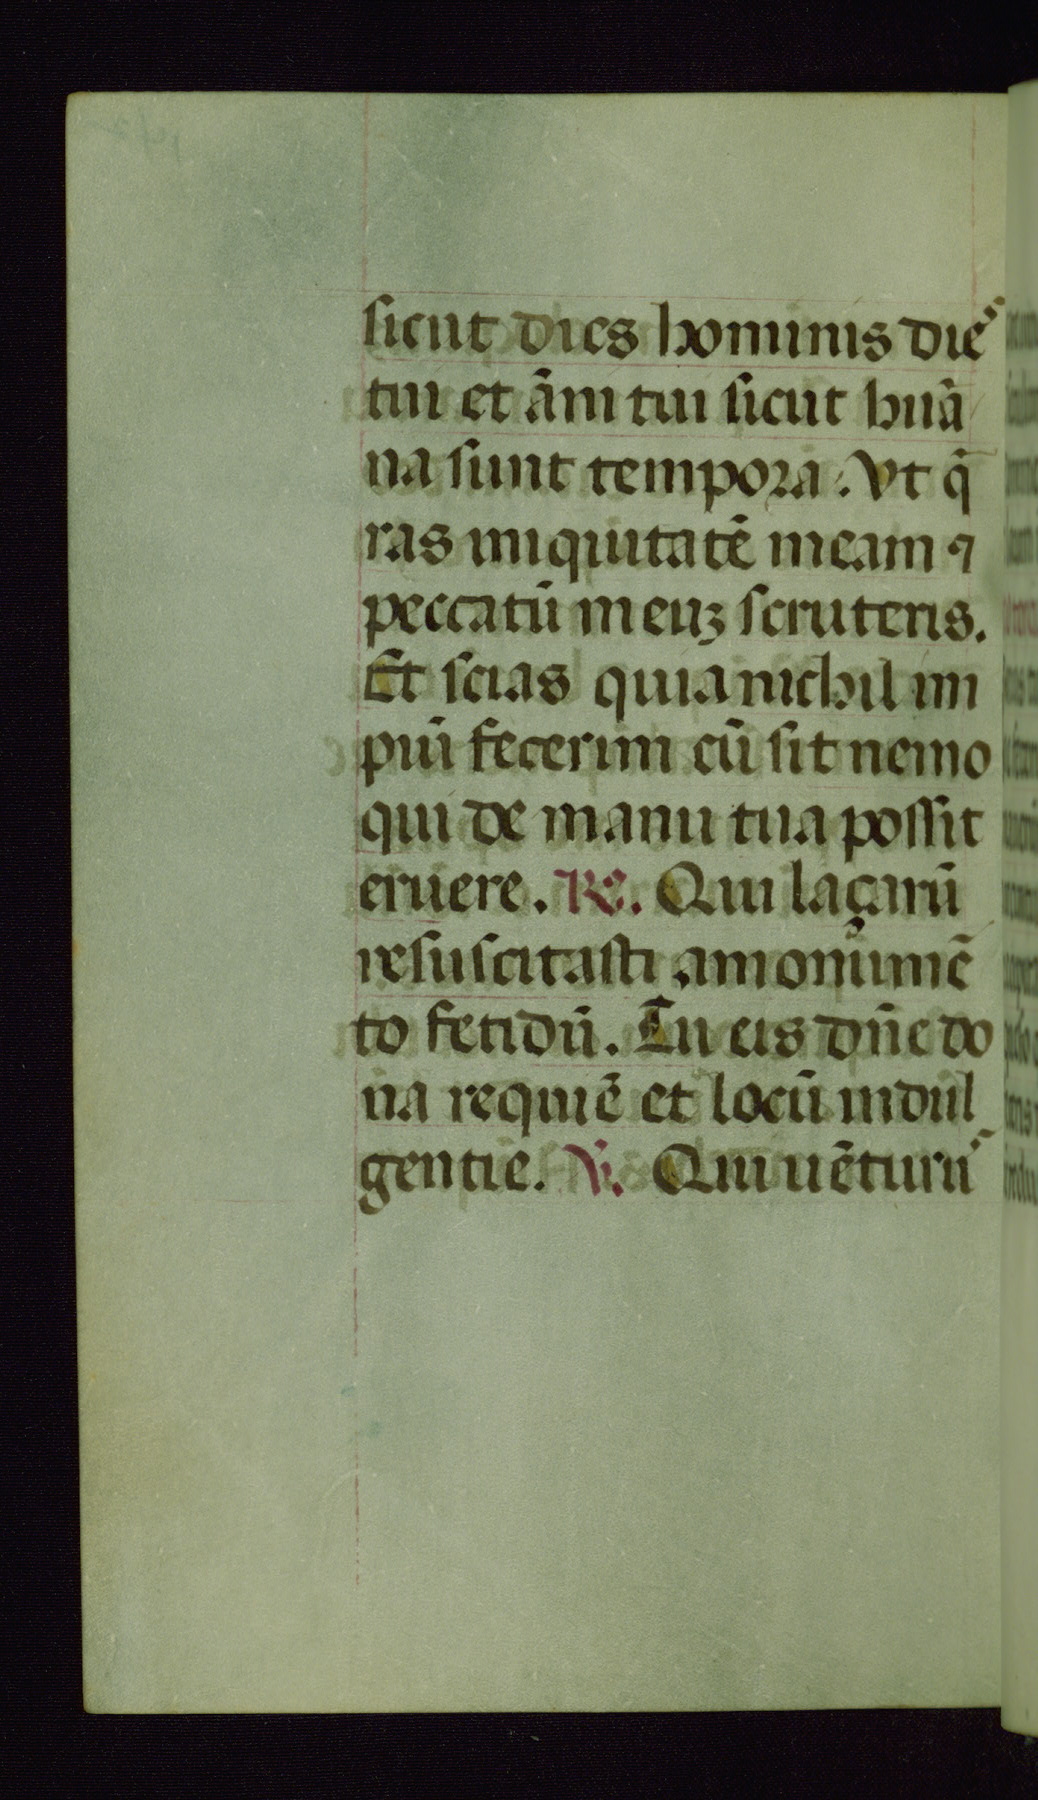 sicut dies hominis die᷒
tui et ãni tui sicut huã
na sunt tempora. Vt q̃
ras iniquitatẽ meam ⁊
peccatũ meuꝫ scruteris.
Et scias quia nichil im
piũ fecerim cũ sit nemo
qui de manu tua possit
eruere. R̃. Qui laçarũ
resuscitasti a monumẽ
to fetidũ. Tu eis dñe do
na requiẽ et locũ indul
gentie. ℣. Qui uẽturu᷒